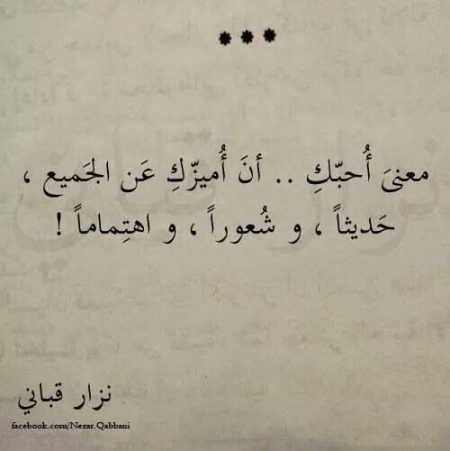 ***
معنىَ أُحبّكِ .. أنَ أُميزّكِ عَن الجَميع ،
حَديثاً ، و شُعوراً ، و اهتِماماً !
نزار قباني
facebook.com/Nezar.Qabbani